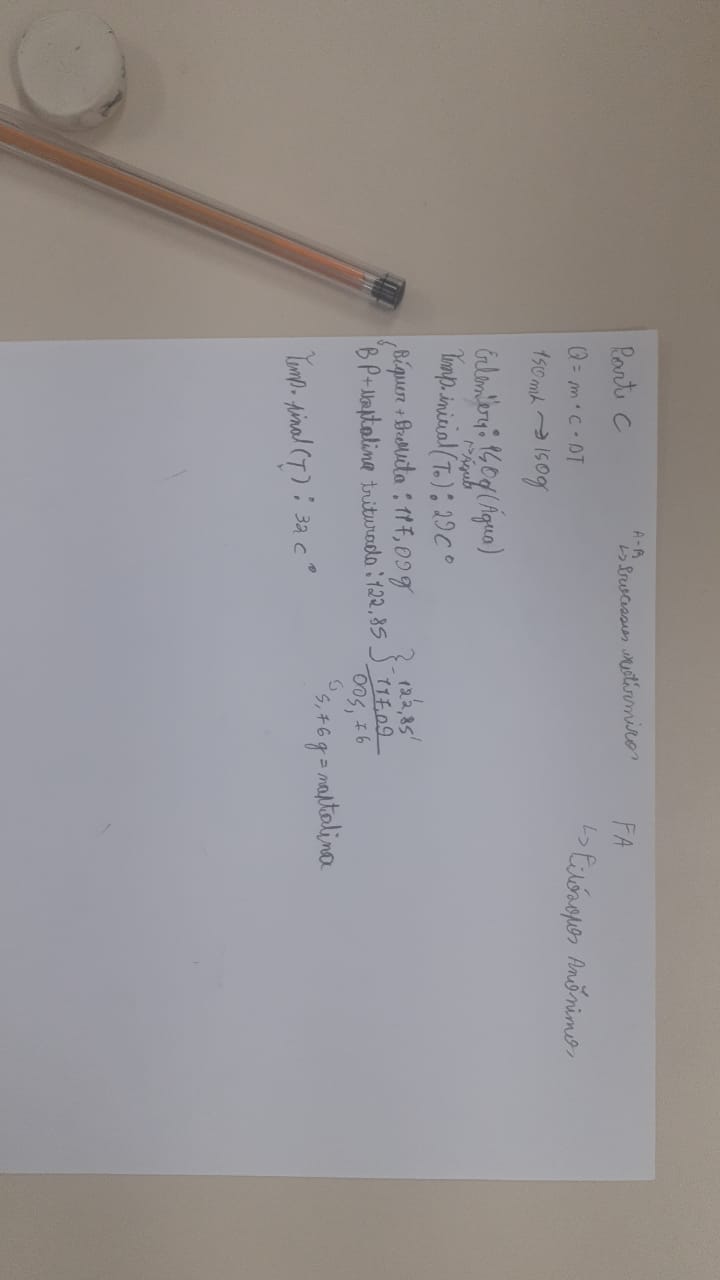 Parte C
A-B
↳ Processos exotérmicos
FA
↳ Filósofos Anônimos
Q = m · C · ΔT
150mL → 150g
Erlem'ery: 150g (Água)
↳ Água
Temp. inicial (T₀): 29 C°
Béquer + Proveta: 117,09 g
BP + Naftalina triturada: 122,85
- 122,85
117,09
005,76
↳ 5,76 g = naftalina
Temp. final (T): 32 C°